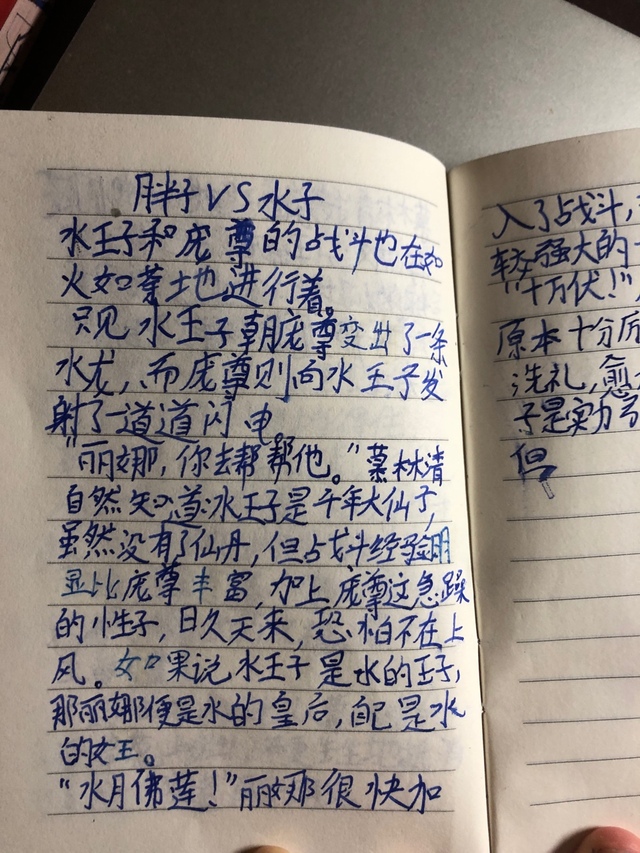 胖子VS水子
水王子和庞尊的战斗也在如
火如荼地进行着。
只见水王子朝庞尊变出了一条
水龙,而庞尊则向水王子发
射了一道道闪电。
“丽娜,你去帮帮他。”慕林清
自然知道水王子是千年大仙子,
虽然没有了仙丹,但占战斗经验明
显比庞尊丰富,加上庞尊这急躁
的小性子,日久天来,恐怕不在上
风。如果说水王子是水的王子,
那丽娜便是水的皇后,自己是水
的女王。
“水月佛莲!”丽娜很快加
入了战斗,
较强大的
“十万伏!”
原本十分厉
洗礼,愈
子是实力
但